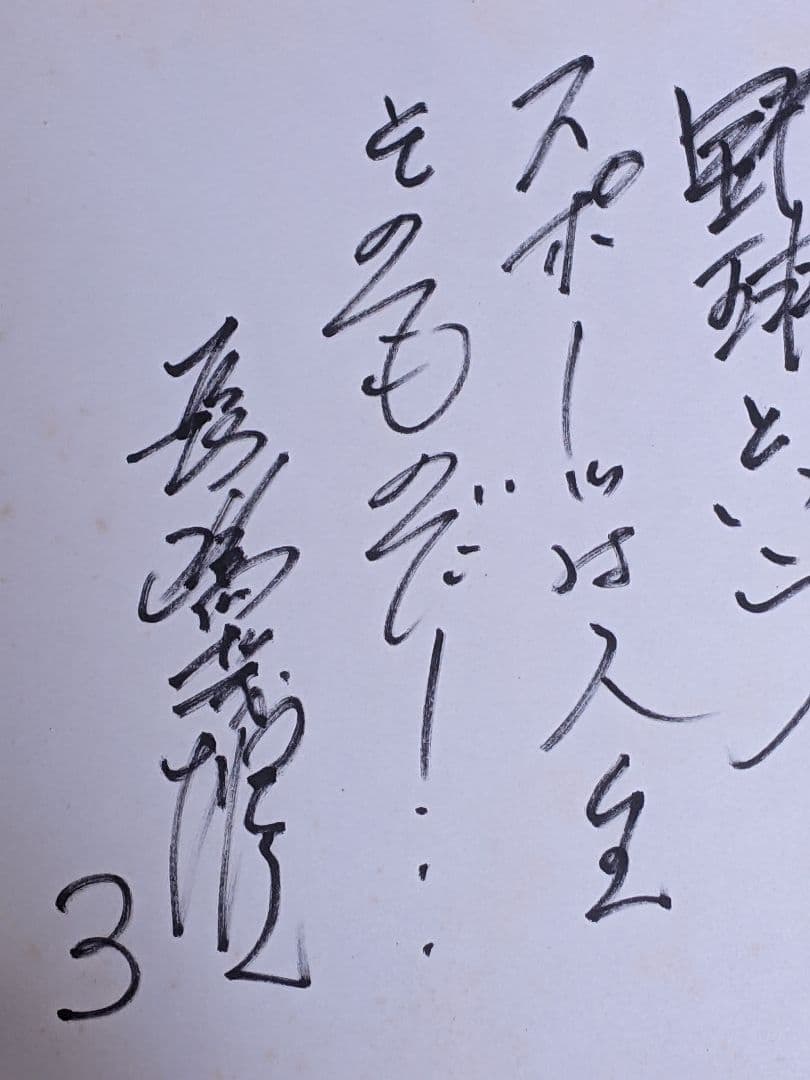 野球という
スポーツは人生
そのものだ!...
長嶋茂雄
3